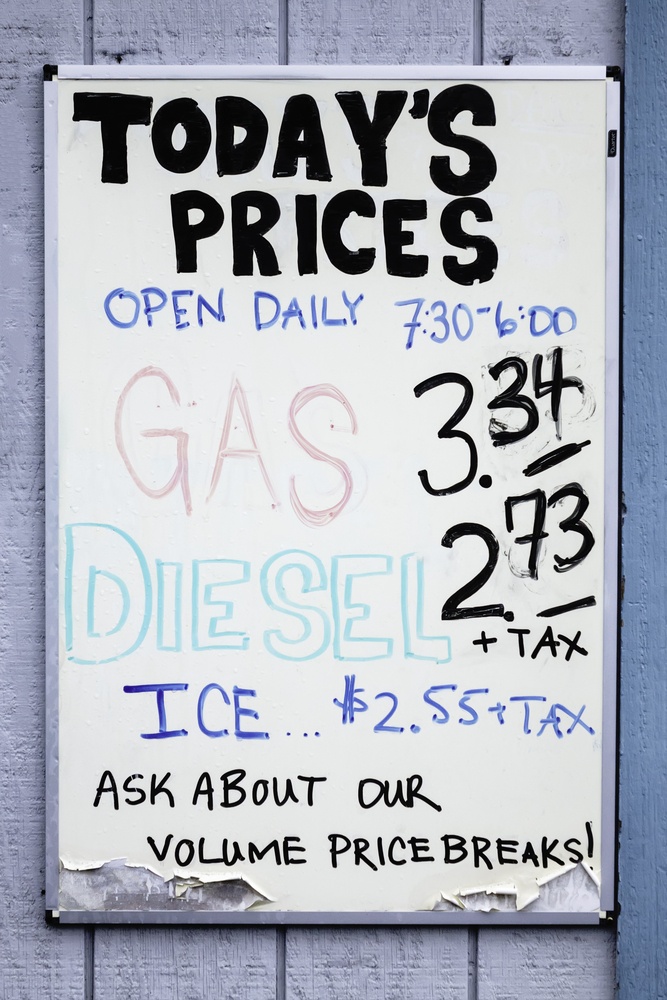 TODAY'S
PRICES
OPEN DAILY 7:30-6:00
GAS 3.34
DIESEL 2.73
+ TAX
ICE... $2.55+TAX
ASK ABOUT OUR
VOLUME PRICE BREAKS!